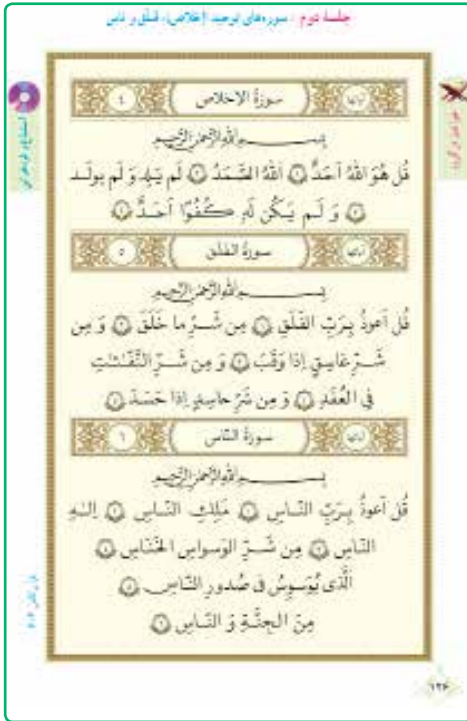 جلسهٔ دوم : سوره‌های توحید (اخلاص)، فلق و ناس
سورة الاخلاص
٤
بِسـمِ اللهِ الرَّحمٰنِ الرَّحيمِ
قُل هُوَ اللهُ اَحَدٌ ١ اَللهُ الصَّمَدُ ٢ لَم يَلِد وَ لَم يولَد
٣ وَ لَـم يَـكُن لَهٗ كُـفُوًا اَحَـدٌ ٤
سورة الفلق
٥
بِسـمِ اللهِ الرَّحمٰنِ الرَّحيمِ
قُل اَعوذُ بِـرَبِّ الفَلَقِ ١ مِن شَـرِّ ما خَلَقَ ٢ وَ مِن
شَـرِّ غاسِقٍ اِذا وَقَبَ ٣ وَ مِن شَـرِّ النَّفّاثاتِ
فِی العُقَدِ ٤ وَ مِن شَرِّ حاسِدٍ اِذا حَسَدَ ٥
سورة النّاس
٦
بِسـمِ اللهِ الرَّحمٰنِ الرَّحيمِ
قُل اَعوذُ بِـرَبِّ النّـاسِ ١ مَلِكِ النّـاسِ ٢ اِلٰـهِ
النّاسِ ٣ مِن شَـرِّ الوَسواسِ الخَنّاسِ ٤
اَلَّذی یُوَسوِسُ فی صُدورِ النّاسِ ٥
مِنَ الجِنَّـةِ وَ النّـاسِ ٦
۱۲۶